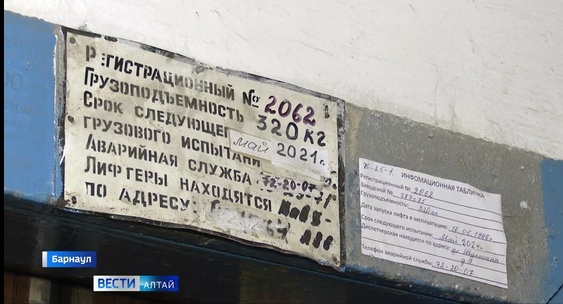 РЕГИСТРАЦИОННЫЙ № 2062
ГРУЗОПОДЪЕМНОСТЬ 320 КГ
СРОК СЛЕДУЮЩЕГ
ГРУЗОВОГО ИСПЫТАНИ май 2021 г.
АВАРИЙНАЯ СЛУЖБА 72-20-07
ЛИФТЕРЫ НАХОДЯТСЯ
ПО АДРЕСУ:
ИНФОМАЦИОННАЯ ТАБЛИЧКА
Регистрационный № 2062
Заводской №
Грузоподъемность: 320кг
Дата запуска лифта в эксплуатацию: 16.05.1986г
Срок следующего испытания: Май 2024г
Диспетчерская находится по адресу:
Телефон аварийной службы: 72-20-07
Барнаул
ВЕСТИ АЛТАЙ